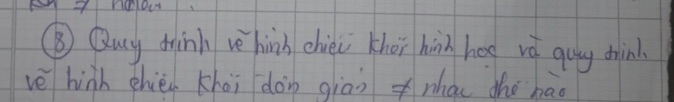 ⑧ Quy trình vẽ hình chiếu khối hình học và quy trình
vẽ hình chiếu khối đơn giản ≠ nhau thế nào